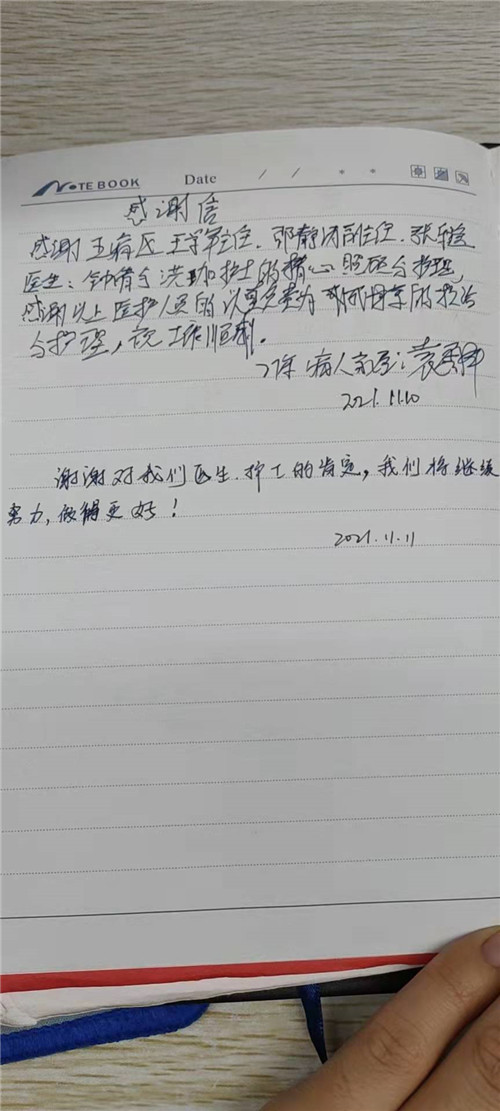 NOTE BOOK Date / / * *
感谢信
感谢五病区王学军主任、邓静闭副主任、张
医生、护士的精心照顾与护理,
感谢以上医护人员的认真负责为我母亲的救治
与护理,祝工作顺利。
病人家属:袁
2021.11.10
谢谢对我们医生、护士的肯定,我们将继续
努力,做得更好!
2021.11.11